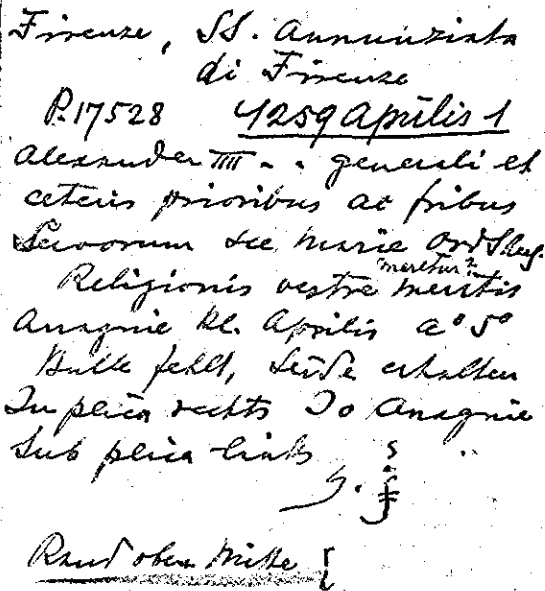 Firenze, SS. Annunziata
di Firenze
P. 17528 1259 Aprilis 1
Alexander IIII - . generali et
ceteris prioribus ac fribus
Servorum sce Marie Ord S Aug.
meretur?
Religionis vestre meritis
Anagnie kl. Aprilis a° 5°
Bulle fehlt, Seide erhalten
In plica rechts Jo Anagnie
Sub plica links
Rand oben Mitte